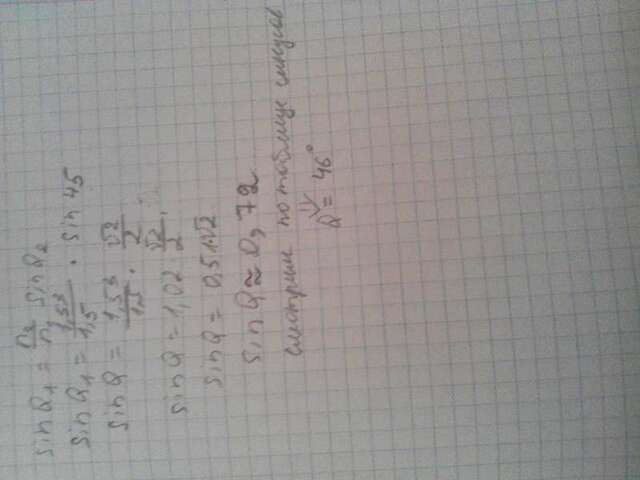 sin Q₁ = n₂/n₁ sin Q₂
sin Q₁ = 1,53/1,5 · sin 45
sin Q = 1,53/1,5 · √2/2
sin Q = 1,02 · √2/2
sin Q = 0,51√2
sin Q ≈ 0,72
смотрим по таблице синусов
⇓
Q = 46°